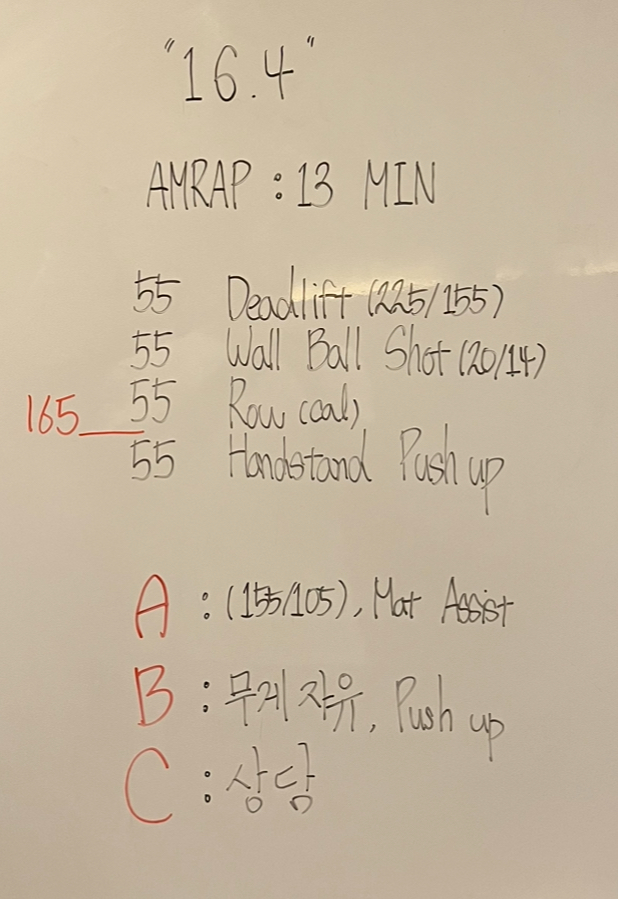 "16.4"
AMRAP : 13 MIN
55 Deadlift (225/155)
55 Wall Ball Shot (20/14)
165 55 Row (cal)
55 Handstand Push up
A : (155/105), Mat Assist
B : 무게 자유, Push up
C : 상담